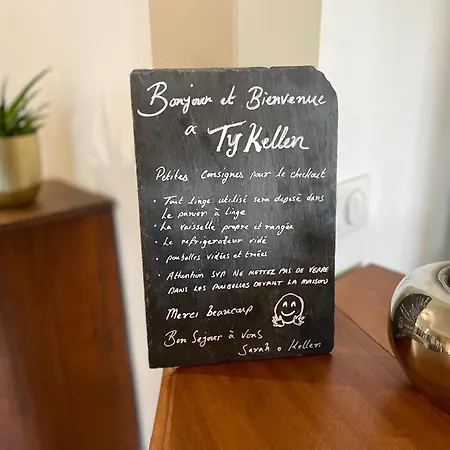 Bonjour et Bienvenue
a
Ty Kellen
Petites consignes pour le checkout
• Tout linge utilisé sera deposé dans
le panier à linge
• La vaisselle propre et rangée
• Le refrigerateur vidé
• poubelles vidées et triées
• Attention SVP NE METTEZ PAS DE VERRE
DANS LES POUBELLES DEVANT LA MAISON
Merci beaucoup
Bon Séjour à vous
Sarah & Kellen